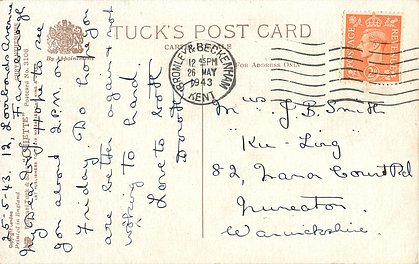 TUCK'S POST CARD
By Appointment
CARTE POSTALE
FOR ADDRESS ONLY
BROMLEY & BECKENHAM
12 45PM
26 MAY
1943
KENT
POSTAGE
REVENUE
Printed in England
25-5-43. 12, Avenue
My Dear
I hope to see
you about 2 P.M. on
Friday. Do hope you
are better again & not
working to hard.
Love to both
Dorothy
Mrs J. B. Smith
"Ku-Ling"
82, Manor Court Rd
Nuneaton.
Warwickshire.